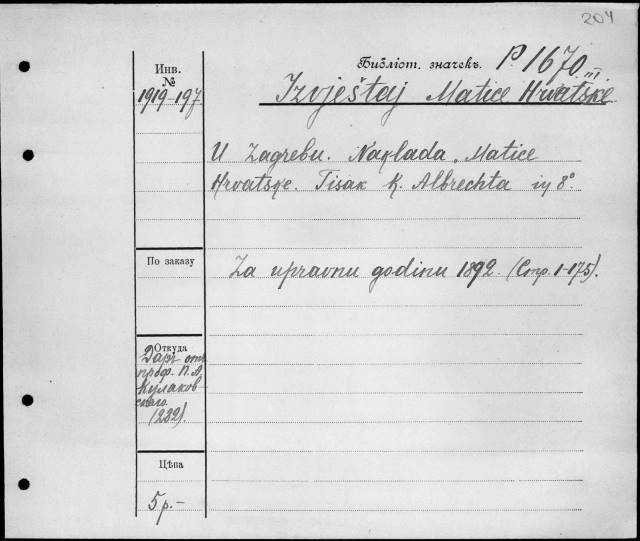 204
Библіот. значекъ. P. 1670.III.
Инв.
№
1919-197
Izvještaj Matice Hrvatske
U Zagrebu. Naklada „Matice
Hrvatske. Tisak K. Albrechta in 8°
По заказу
Za upravnu godinu 1892. (Стр. 1-175).
Откуда
Даръ отъ
проф. П. А.
Кулаков
скаго
(232).
Цѣна
5 р.-